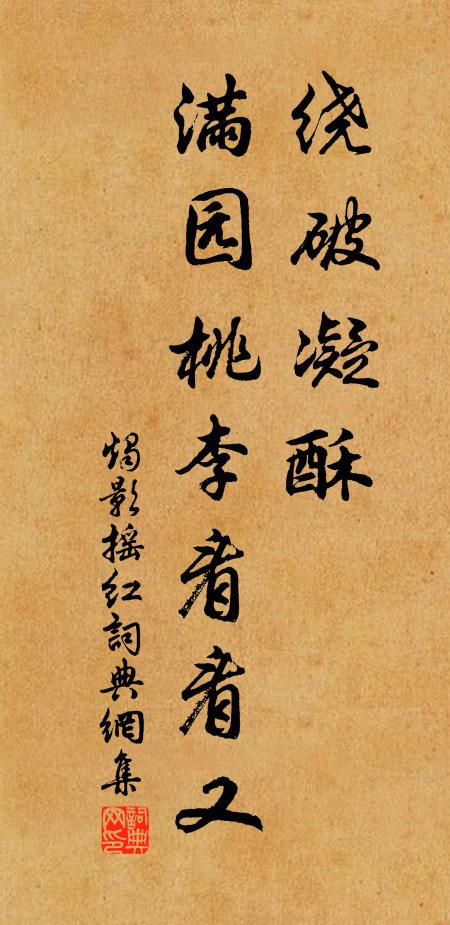 绕破凝酥
满园桃李看看又
烛影摇红詞典網集
詞典
网印